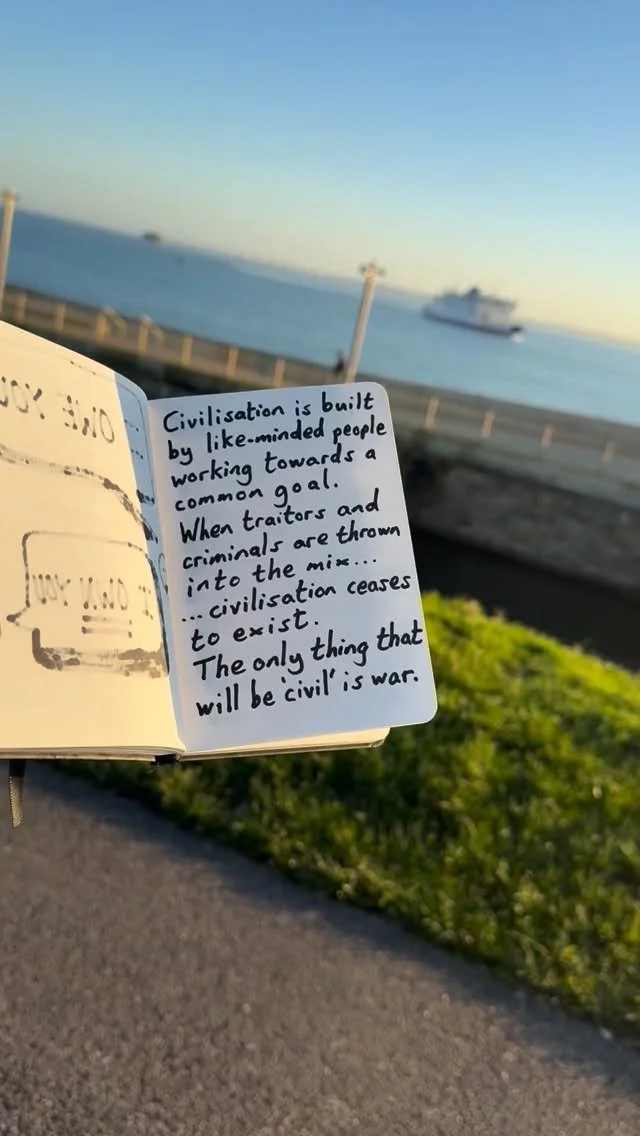 Civilisation is built
by like-minded people
working towards a
common goal.
When traitors and
criminals are thrown
into the mix...
...civilisation ceases
to exist.
The only thing that
will be 'civil' is war.